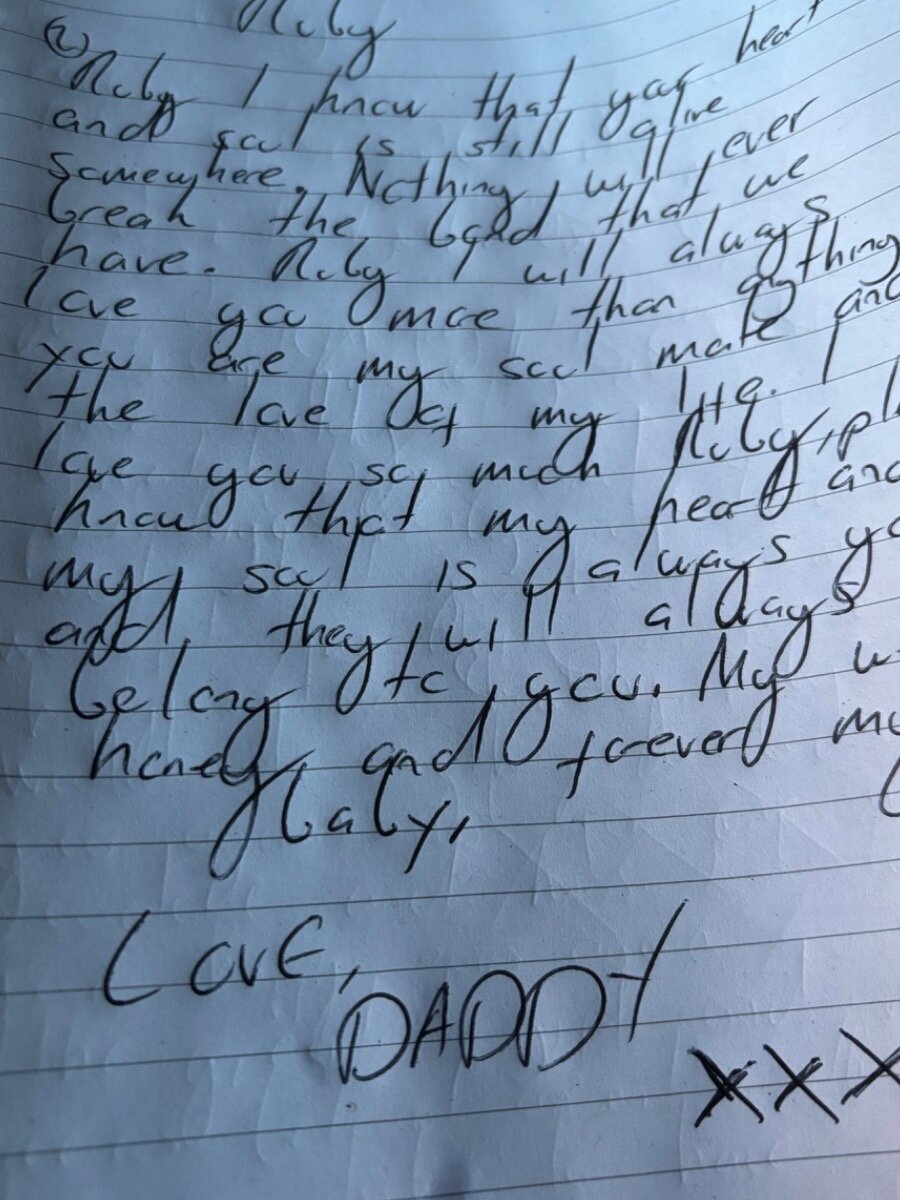 Ruby
2) Ruby I know that your heart
and soul is still alive
somewhere. Nothing will ever
break the bond that we
have. Ruby I will always
love you more than anything
you are my soul mate and
the love of my life. I
love you so much Ruby, pl
know that my heart and
my soul is always yo
and they will always
belong to you. My w
honey and forever my
baby,
Love,
DADDY
xxx